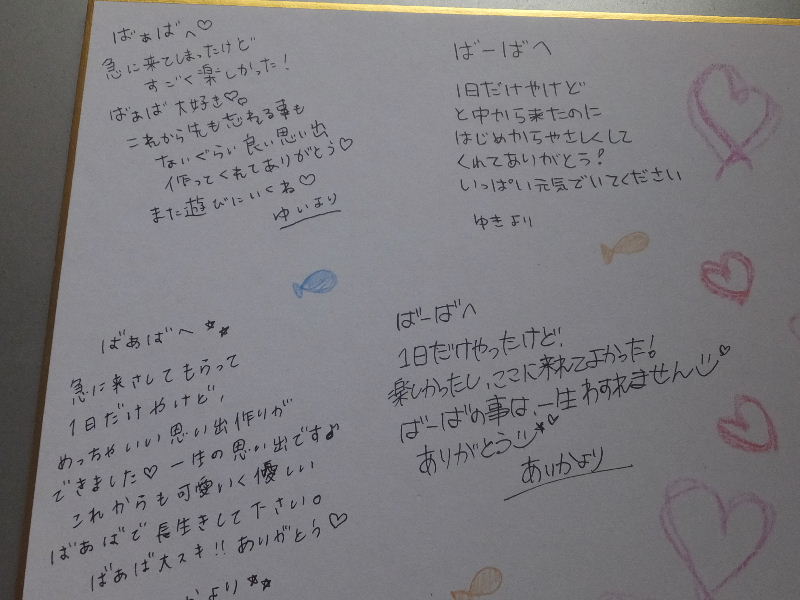 ばぁばへ♡
急に来てしまったけど
すごく楽しかった！
ばぁば大好き♡。
これから先も忘れる事も
ないぐらい良い思い出
作ってくれてありがとう♡
また遊びにいくね♡
ゆいより
ばーばへ
1日だけやけど
と中から来たのに
はじめからやさしくして
くれてありがとう？
いっぱい元気でいてください
ゆきより
ばぁばへ ☆☆
急に来さしてもらって
1日だけやけど、
めっちゃいい思い出作りが
できました♡ 一生の思い出ですよ
これからも可愛いく優しい
ばあばで長生きして下さい。
ばぁば大スキ!! ありがとう♡
より ☆☆
ばーばへ
1日だけやったけど、
楽しかったし、ここに来れてよかった！
ばーばの事は、一生わすれません♡
ありがとう
ありかより